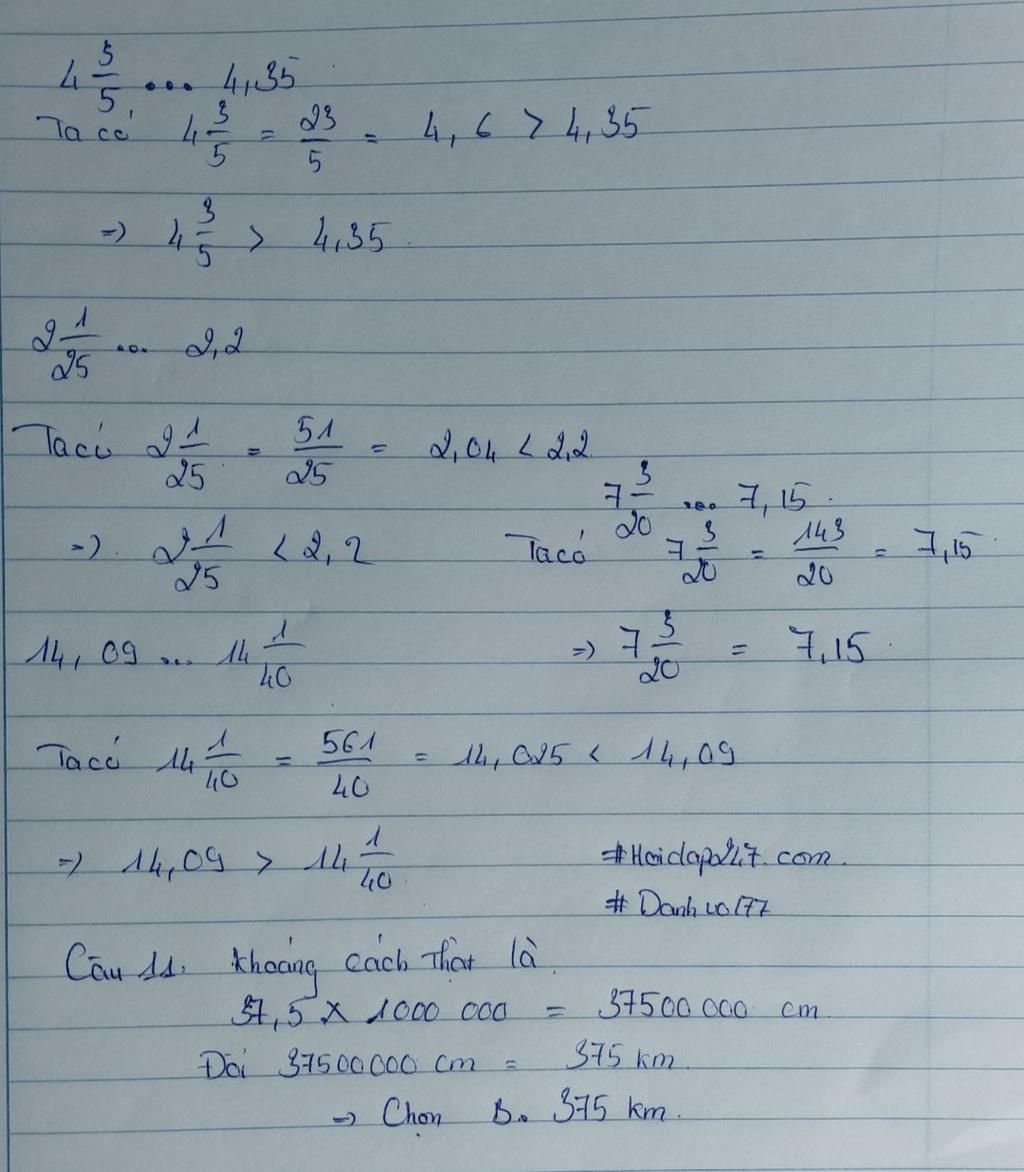 4 3/5 ... 4,35
Ta có 4 3/5 = 23/5 = 4,6 > 4,35
=> 4 3/5 > 4,35
2 1/25 ... 2,2
Ta có 2 1/25 = 51/25 = 2,04 < 2,2
=> 2 1/25 < 2,2
7 3/20 ... 7,15
Ta có 7 3/20 = 143/20 = 7,15
=> 7 3/20 = 7,15
14,09 ... 14 1/40
Ta có 14 1/40 = 561/40 = 14,025 < 14,09
=> 14,09 > 14 1/40
#Hoidap247.com
Câu 11. Khoảng cách thật là
37,5 x 1000 000 = 37500 000 cm
Đổi 37500000 cm = 375 km
=> Chọn B. 375 km.